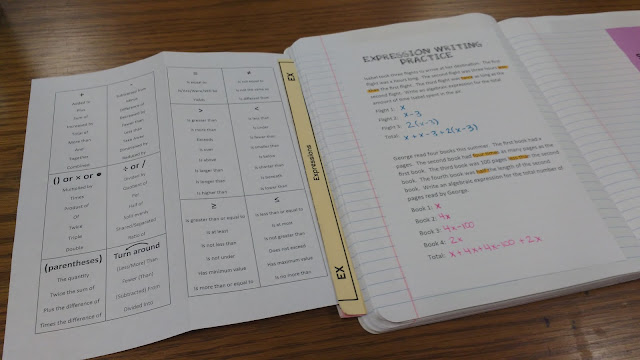 +
Added to
Plus
Sum of
Increased by
Total of
More than
And
Together
Combined
-
Subtracted from
Minus
Difference of
Decreased by
Fewer than
Less than
Take away
Diminished by
Reduced by
() or × or •
Multiplied by
Times
Product of
Of
Twice
Triple
Double
÷ or /
Divided by
Quotient of
Per
Half of
Split evenly
Shared/Separated
Ratio of
(parentheses)
The quantity
Twice the sum of
Plus the difference of
Times the difference of
Turn around
(Less/More) Than
Fewer (Than)
(Subtracted) From
Divided Into
=
Is equal to
Is/Are/Were/Will be
Yields
≠
Is not equal to
Is not the same as
Is different than
>
Is greater than
Is more than
Exceeds
Is over
Is above
Is longer than
Is bigger than
Is higher than
<
Is less than
Is under
Is fewer than
Is smaller than
Is below
Is shorter than
Is beneath
Is lower than
≥
Is greater than or equal to
Is at least
Is not less than
Is not under
Has minimum value
Is more than or equal to
≤
Is less than or equal to
Is at most
Is not greater than
Does not exceed
Has maximum value
Is no more than
EX
Expressions
EX
EXPRESSION WRITING
PRACTICE
Isabel took three flights to arrive at her destination. The first
flight was x hours long. The second flight was three hours less
than the first flight. The third flight was twice as long as the
second flight. Write an algebraic expression for the total
amount of time Isabel spent in the air.
Flight 1: x
Flight 2: x-3
Flight 3: 2(x-3)
Total: x+x-3+2(x-3)
George read four books this summer. The first book had x
pages. The second book had four times as many pages as the
first book. The third book was 100 pages less than the second
book. The fourth book was half the length of the second
book. Write an algebraic expression for the total number of
pages read by George.
Book 1: x
Book 2: 4x
Book 3: 4x-100
Book 4: 2x
Total: x+4x+4x-100+2x